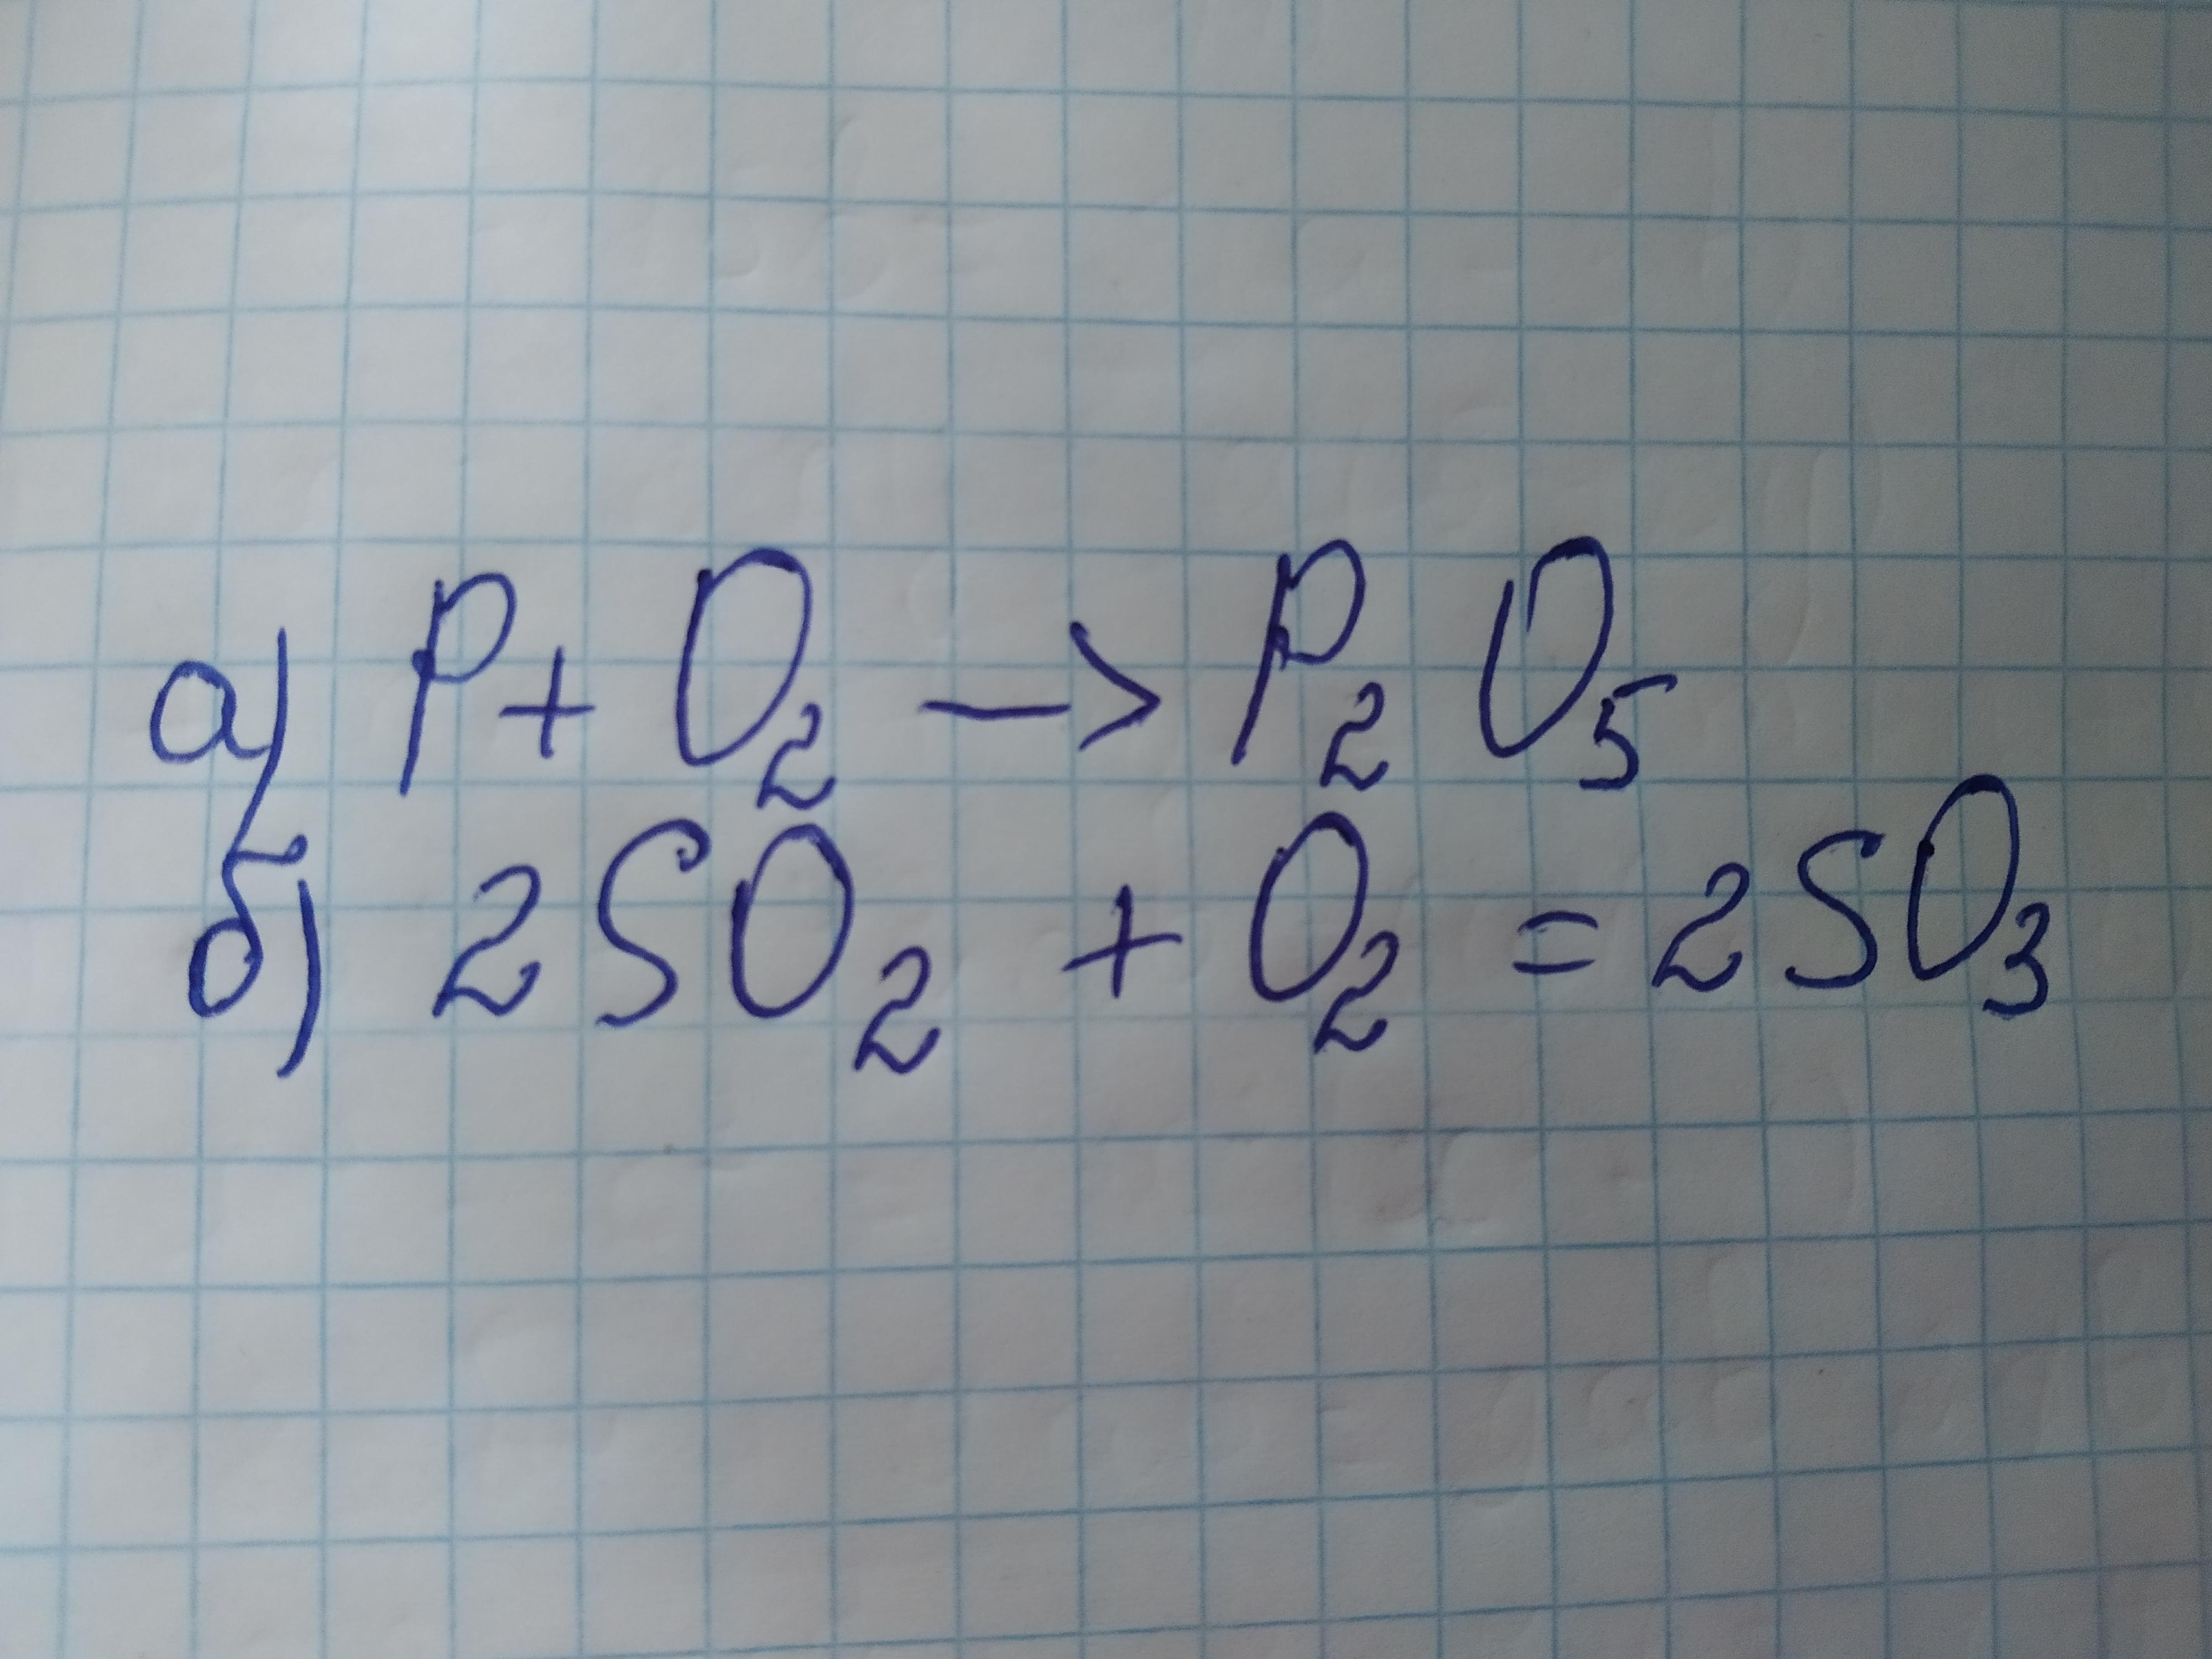 а) P + O₂ → P₂O₅
б) 2SO₂ + O₂ = 2SO₃